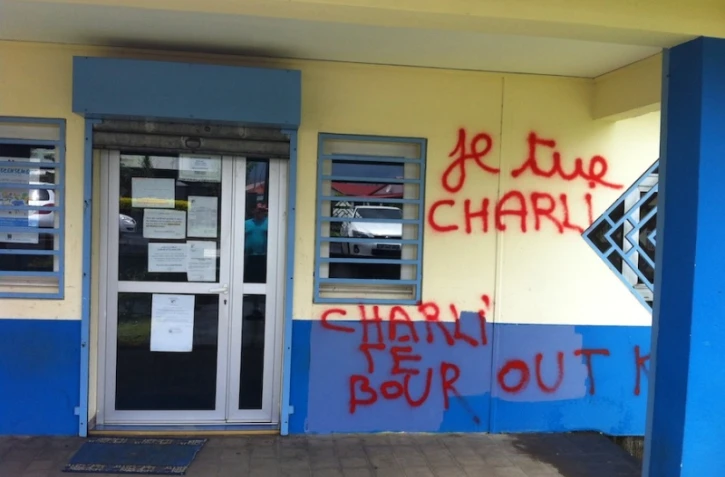 Je tue
CHARLi
CHARLi
TÉ
BOUR OUT K